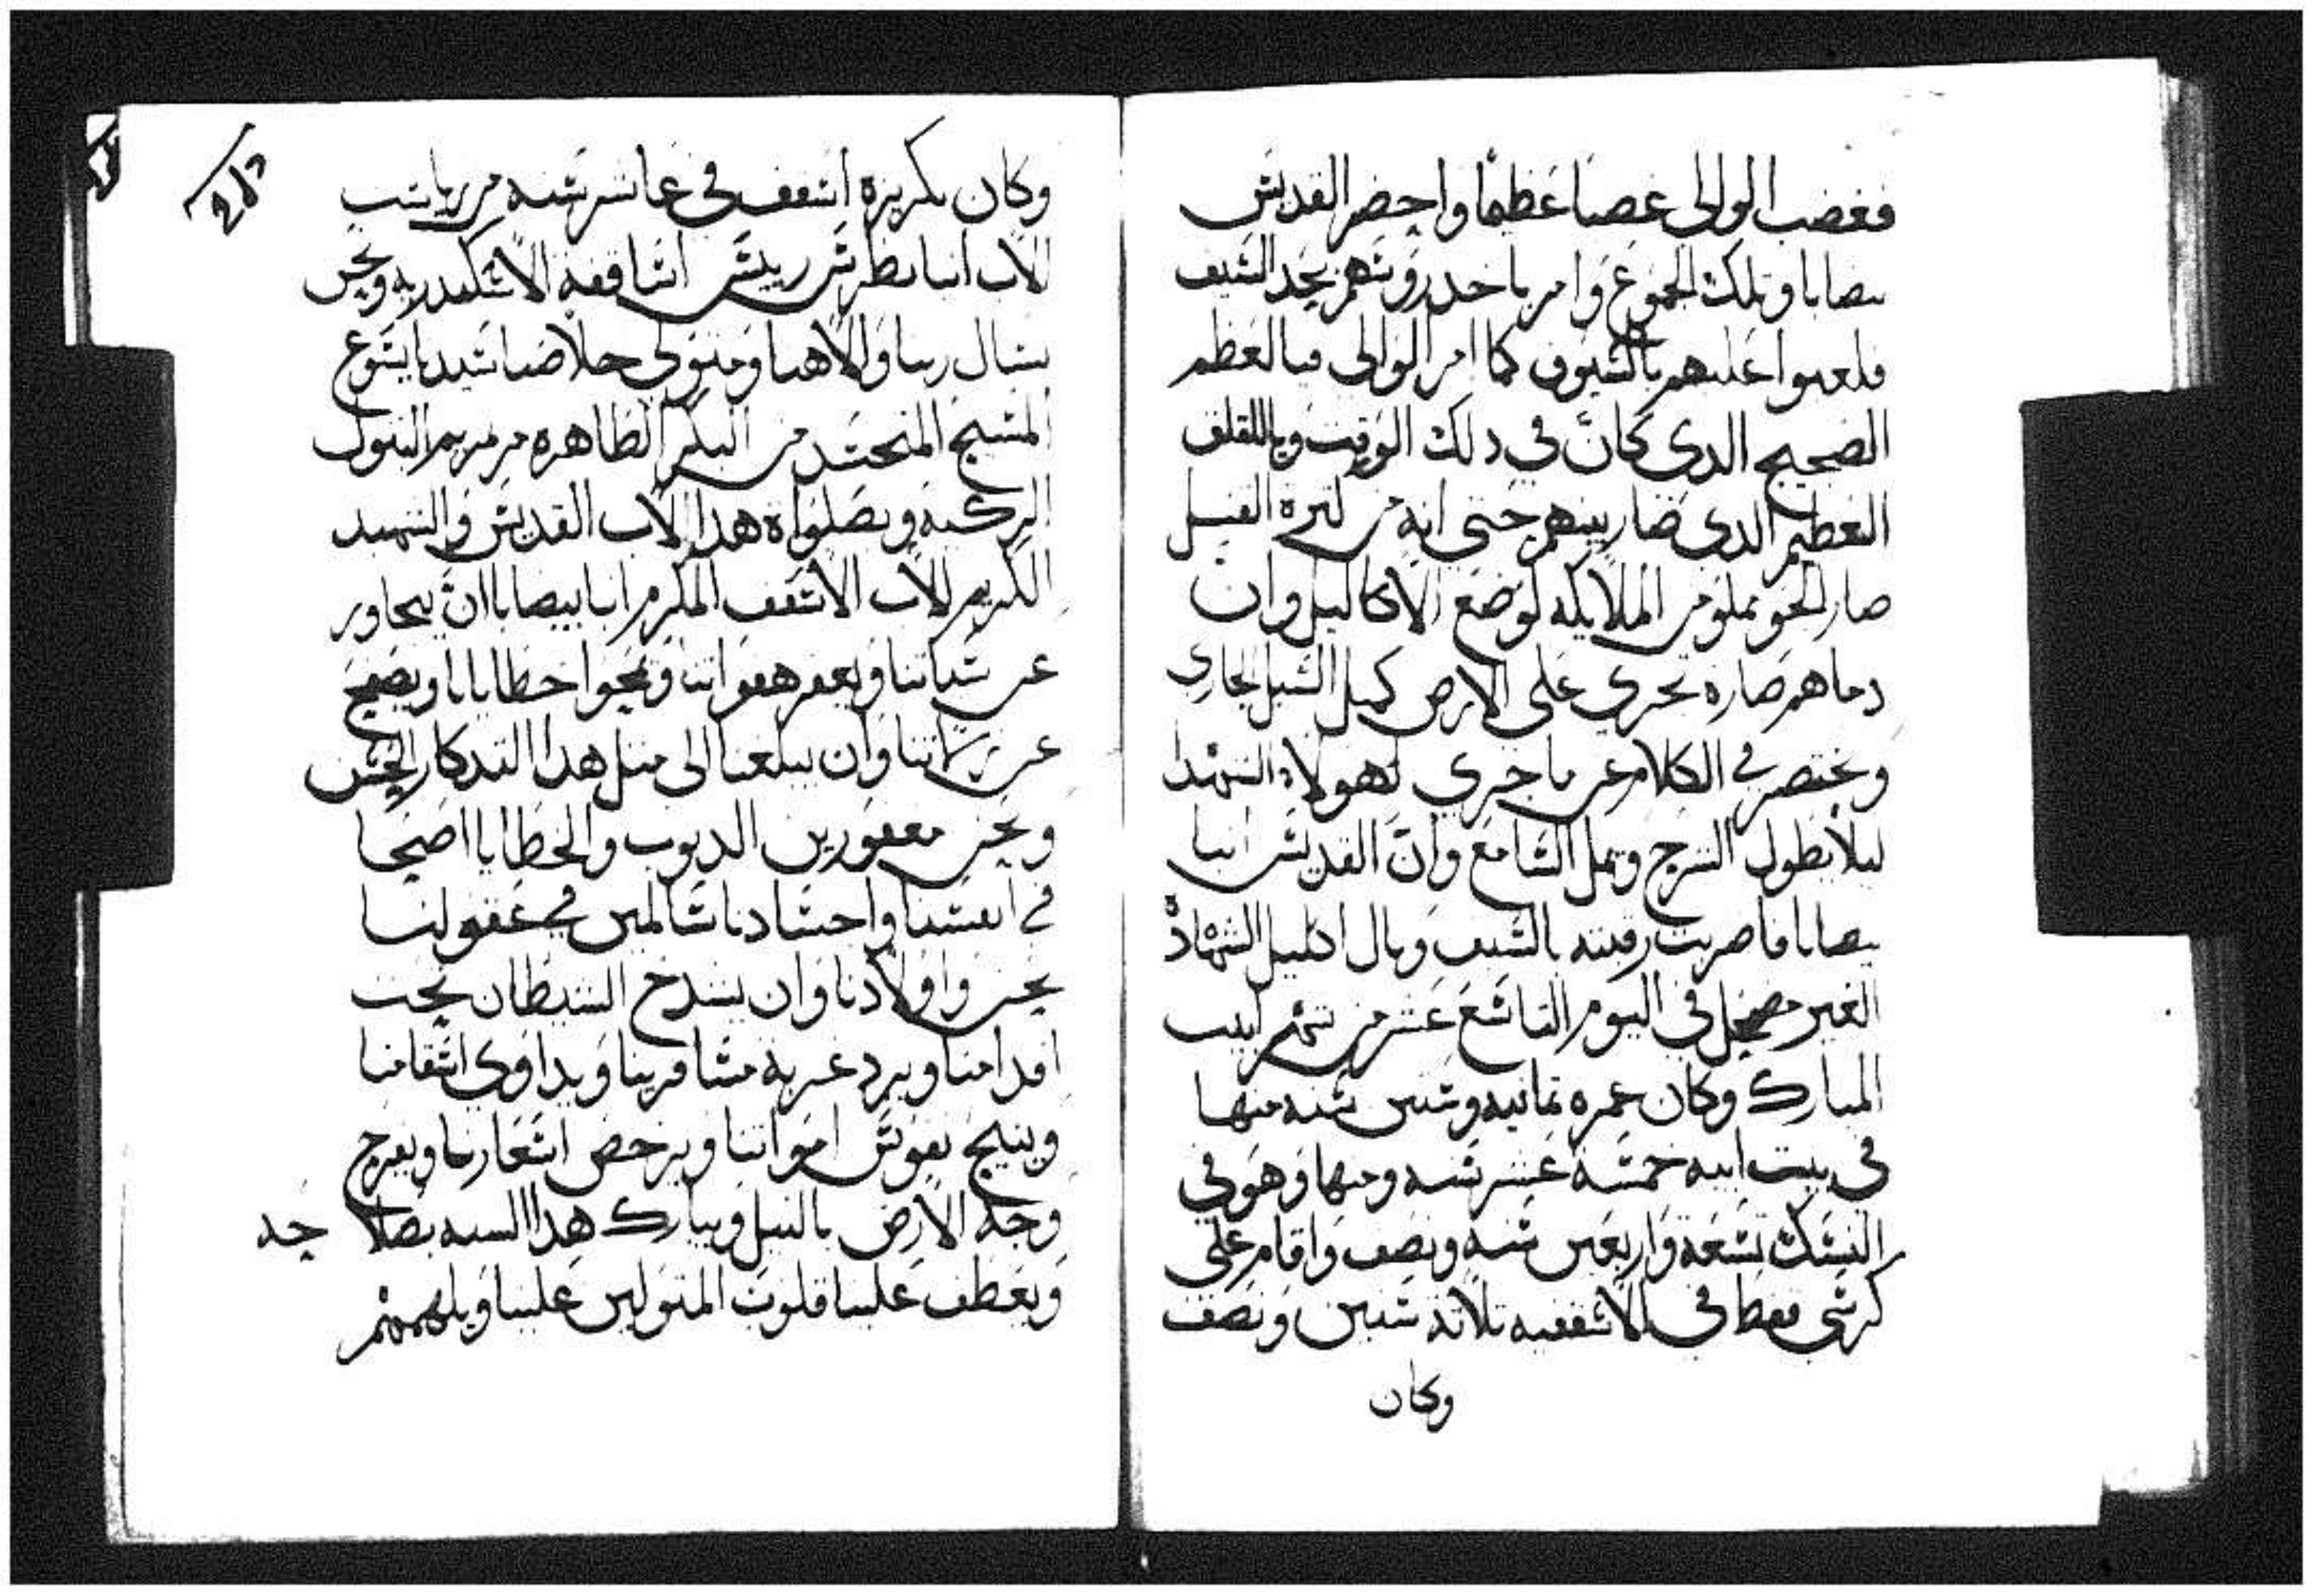 فغضب الوالى غصبا عَظيمًا واحضر القديسَ
بيصابا وتلك الجموع وَامر باخد روَسَهم بحد السَيف
فلعبوا عليهم بالسَيوف كما امر الوَالى فيا لعَظم
الضجيج الدى كانَ في دلك الوَقت ويا للقلق
العظيم الدى صَار بينهم حتى انه من كترة القتل
صار الجَو مملوَ من الملايكه لوَضع الاكاليل وان
دماهم صَاره تجرى علَى الارض كميل السَيل الجارى
وَنختصر في الكلام عن ما جرى لهولاء الشهدا
ليلا يطول الشرح ويمل السَامع وانَّ القديسَ انبا
بيصابا فاضربت رقبته بالسَيف وَنال اكليل الشهادة
الغير مضمحل في اليوم التاسَع عَشر من شهر ابيب
المبارك وَكان عمره تمانيه وستين سَنه منها
في بيت ابيه خمسَة عَشر سَنه ومنها وَهوَ في
النسَك تسَعَة وَاربعَين سَنه وَنصف وَاقام على
كرسَى قفط في الاسَقفيه تلاتة سَنين وَنصف
وكان
وَكان تكريزه اسَقف في عَاشر سَنه من رياسَت
الاب انبا بطرسَ رييسَ اسَاقفة الاسَكندريه ونحن
نسَال ربنا وَالاهنا وَمتولى خلاصنا سَيدنا يسَوع
المسَيح المتجسَد من البكر الطَاهره مرتمريم البتول
الزكيه وَبصَلوَاة هدا الاب القديسَ وَالشهيد
الكريم الاب الاسَقف المكرم انبا بيصابا انَ يتجاوز
عن سَياتنا وَيغفر هفوَاتنا وَيمحوا خطايانا ويصَفح
عن زلاتنا وَان يبلغنا الى متل هدا التدكار الحسَن
وَنحن مغفورين الدنوب والخطَايا اصَحا
في انفسَنا وَاجسَادنا سَالمين في عَقولنا
نحن وَاوَلادنا وَان يشدخ الشيطَان تحت
اقدامنا ويرد غربة مسَافرينا وَيداوى اسَقامنا
وينيح نفوَسَ اموَاتنا ويرخص اسَعَارنا ويفرح
وَجه الارض بالنيل ويبارك هَدا السنه بصَلاحه
وَيعَطف عَلينا قلوبَ المتوَلين عَلينا وَيلهمهم